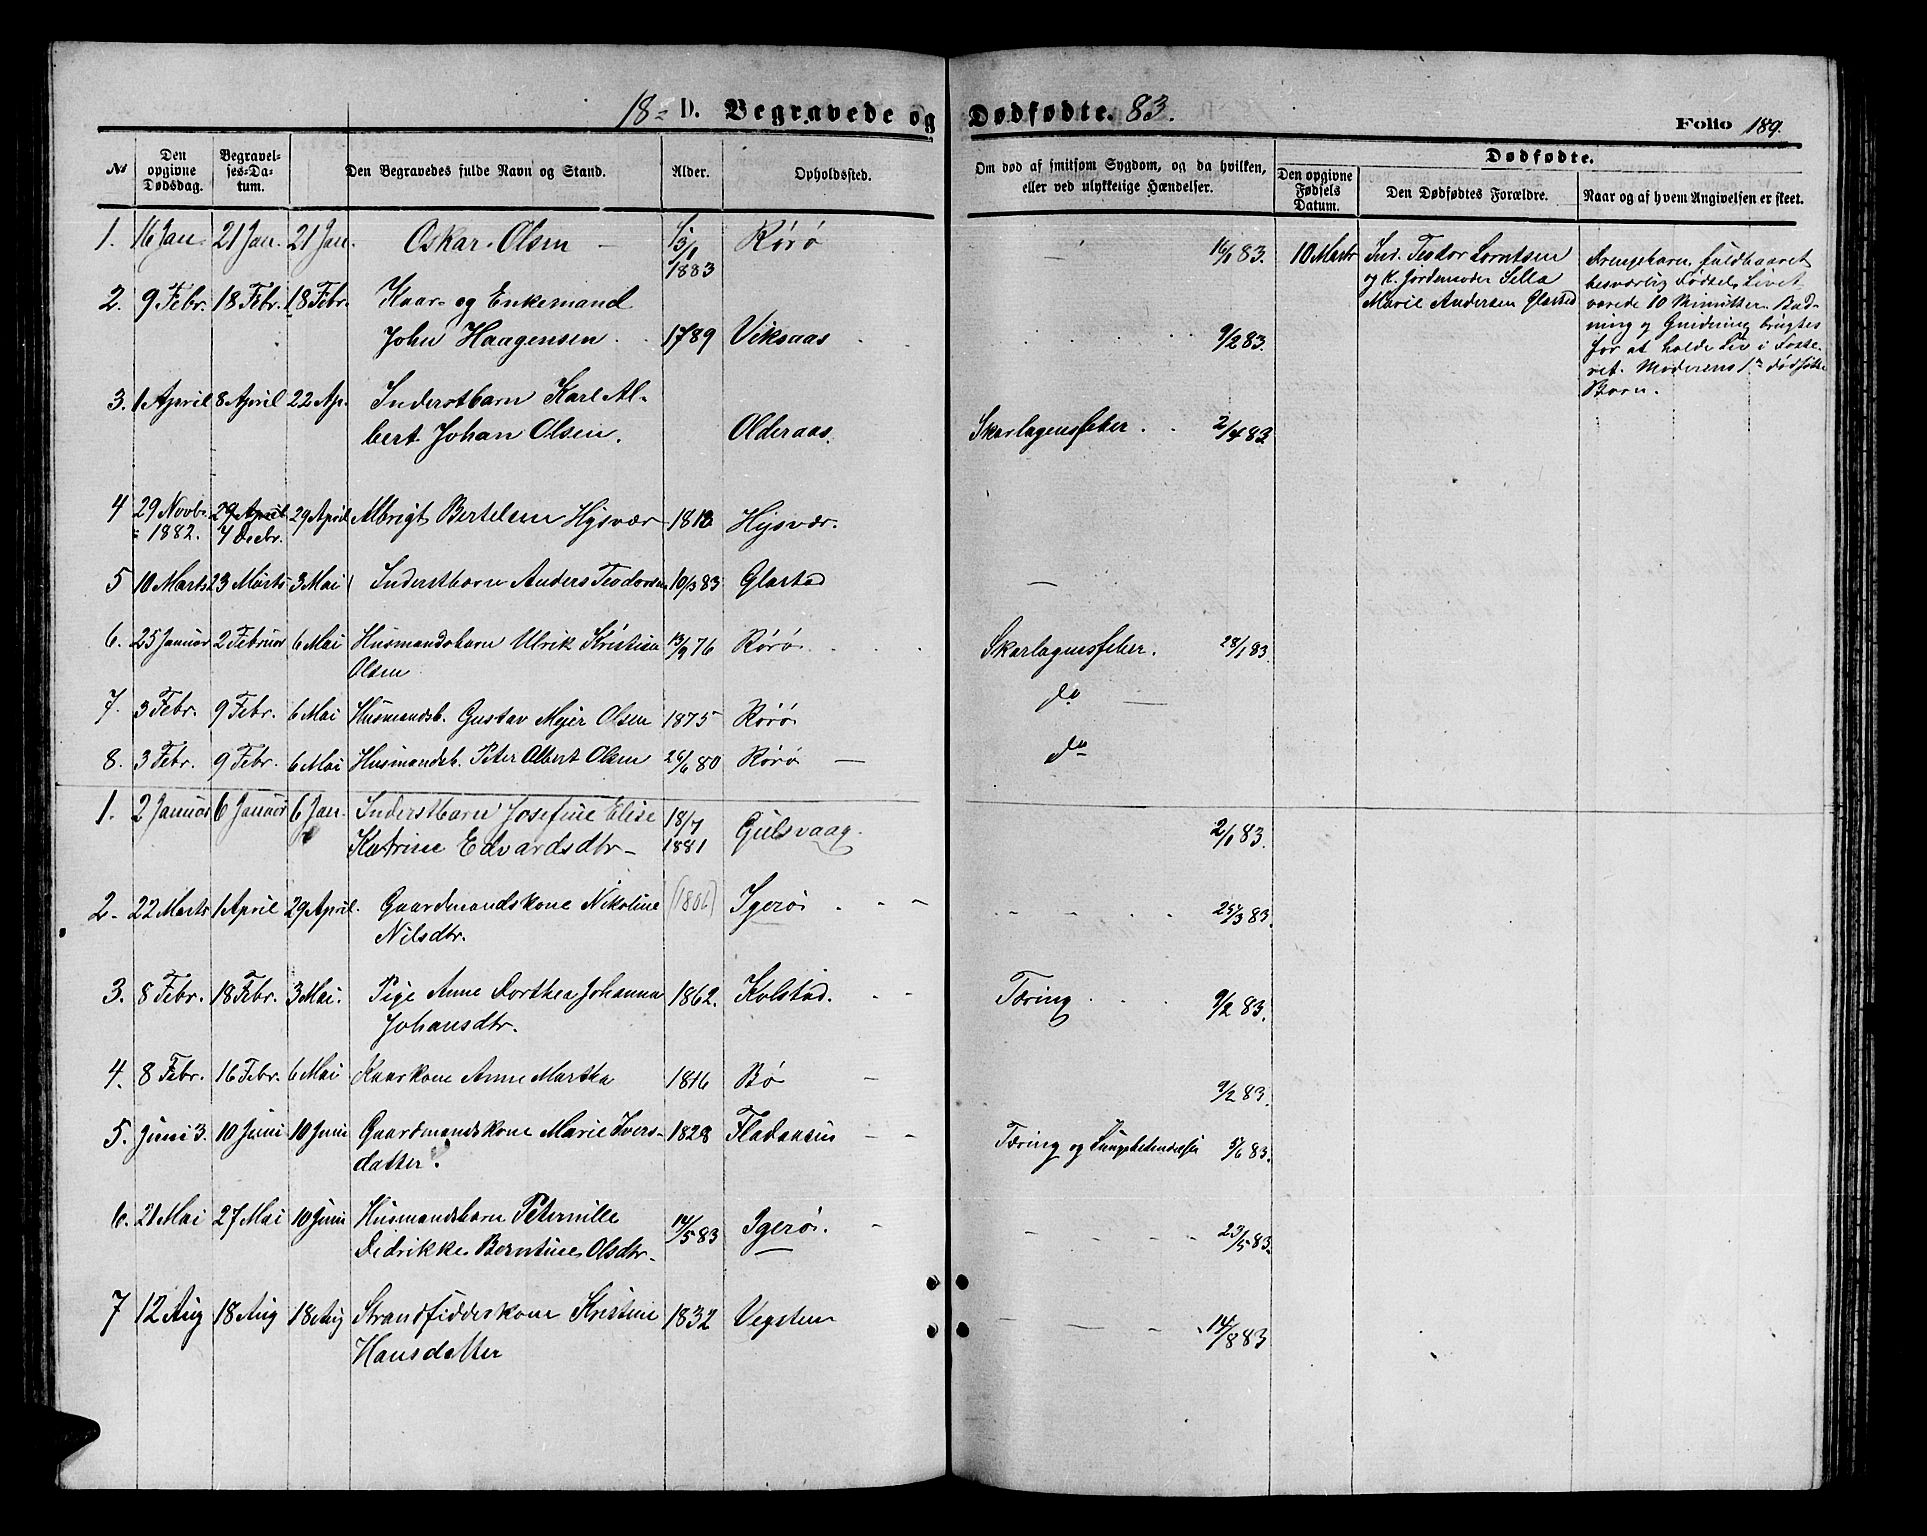 18 D. Begravede og Dødfødte. 83.
Folio 189.
No
Den opgivne Dødsdag.
Begravelses-Datum.
Den Begravedes fulde Navn og Stand.
Alder.
Opholdssted.
Om død af smitsom Sygdom, og da hvilken,
eller ved ulykkelige Hændelser.
Dødfødte.
Den opgivne Fødsels Datum.
Den Dødfødtes Forældre.
Naar og af hvem Angivelsen er skeet.
1. 16 Jan. 21 Jan. 21 Jan. Oskar Olsen 1883 Rørø 16/1 83.
10 Marts Ind. Teodor Lorntsen
og K. Jordemoder Sella
Marie Andersen Glastad
Drengebarn, fuldbaaret
besværlig Fødsel, Livet
varede 10 Minutter. Bad-
ning og Gnidning brugtes
for at holde Liv i Foste-
ret. Moderens 1ste dødfødte
Barn.
2. 9 Febr. 18 Febr. 18 Febr. Kaar- og Enkemand
John Haagensen 1789 Viksaas 9/2 83.
3. 1 April 8 April 22 Ap. Inderstbarn Karl Al-
bert Johan Olsen. Olderaas. Skarlagensfeber 2/4 83
4 29 Novbr. 29 April 29 April Albrigt Bertelsen Hysvær 1818 Hysvær.
1882. 7 Decbr.
5 10 Marts 23 Marts 3 Mai Inderstbarn Anders Teodorsen 10/3 83 Glastad —
6. 25 Januar 2 Februar 6 Mai Husmandsbarn Ulrik Kristian 13/9 76 Rørø Skarlagensfeber. 28/1 83.
Olsen
7. 3 Febr. 9 Febr. 6 Mai Husmandsb. Gustav Mejer Olsen 1875 Rørø do —
8. 3 Febr. 9 Febr. 6 Mai Husmandsb. Peter Albert Olsen 26/6 80 Rørø — do
1. 2 Januar 6 Januar 6 Jan. Inderstbarn Josefine Elise 18/7
Katrine Edvardsdtr 1881 Gulsvaag. 2/1 83.
2. 22 Marts 1 April 29 April. Gaardmandskone Nikoline Igerø 25/3 83.
Nilsdtr.
3. 8 Febr. 18 Febr. 3 Mai. Pige Anne Dorthea Johanna 1862. Kolstad. Tæring 9/2 83.
Johansdtr.
4. 8 Febr. 16 Febr. 6 Mai Kaarkone Anne Martha 1816 Bø 9/2 83.
5. Juni 3. 10 Juni 10 Juni Gaardmandskone Marie Ivers- 1828 Fladansen Tæring og Lungebetændelse 5/6 83.
datter.
6. 21 Mai 27 Mai 10 Juni Husmandsbarn Peternille
Didrikke Berntine Olsdtr. 14/5 83 Igerø. 23/5 83.
7 12 Aug 18 Aug 18 Aug Strandsidderskone Kristine 1832 Vegsten 14/8 83
Hansdatter